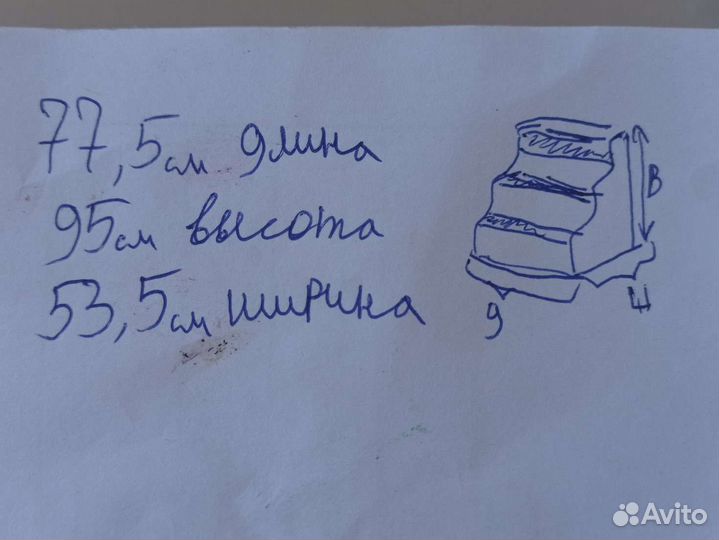 77,5см длина
95см высота
53,5см ширина
В
Д
Ш
Avito